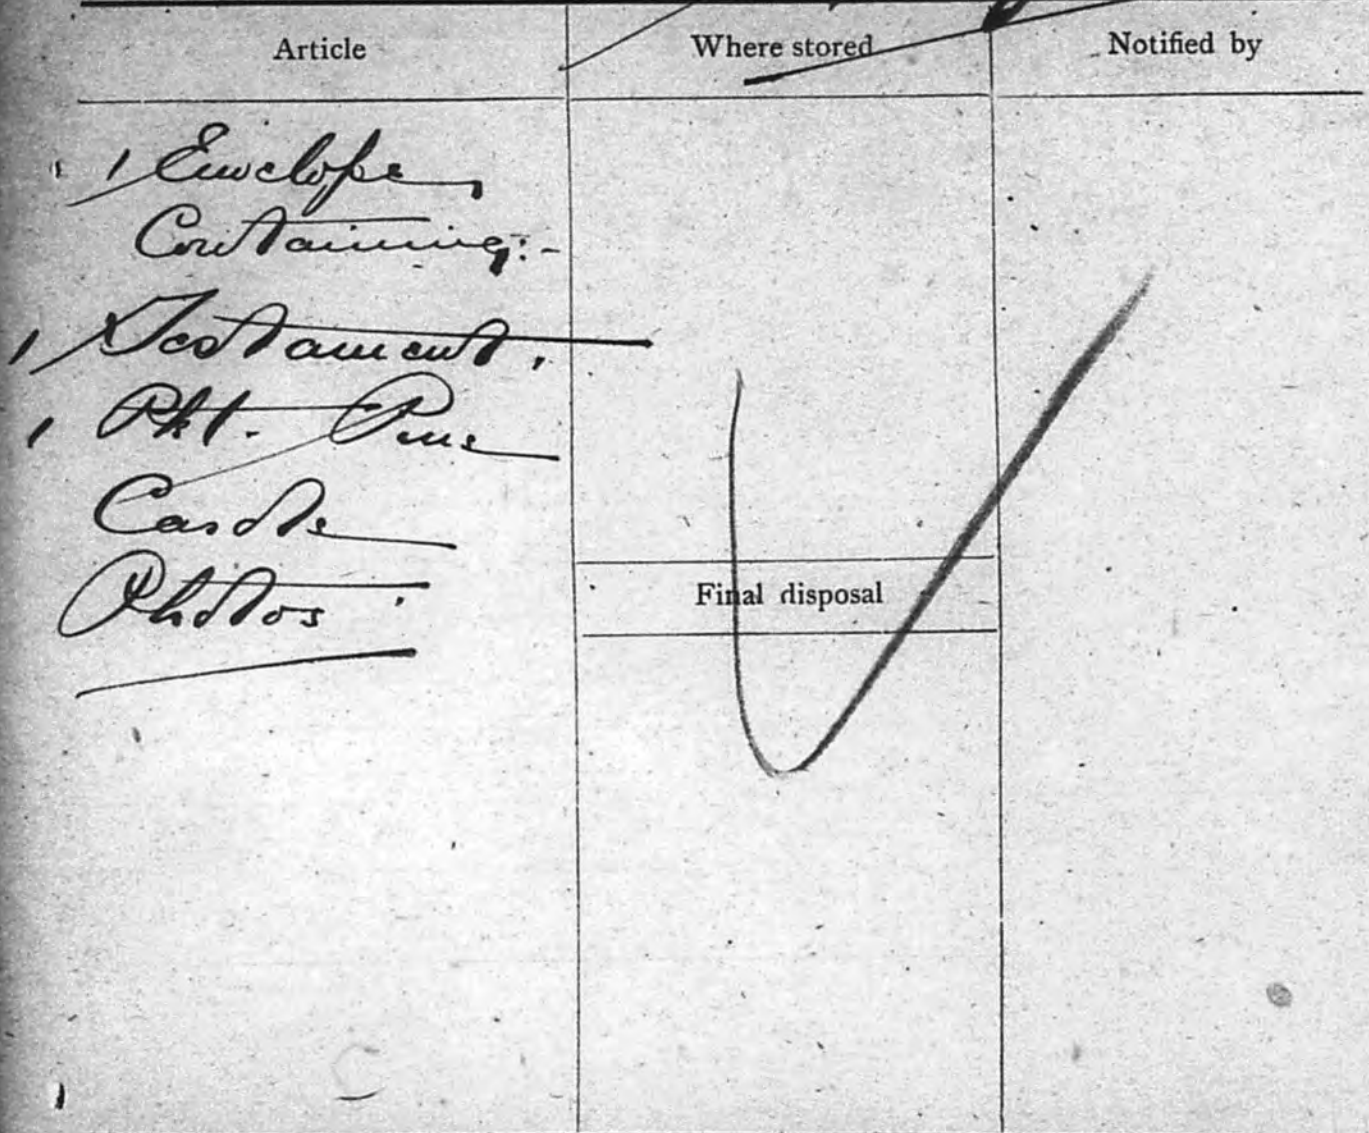 Article Where stored Notified by
1 Envelope,
Containing:-
1 Testament,
1 Pkt.
Photos
Final disposal